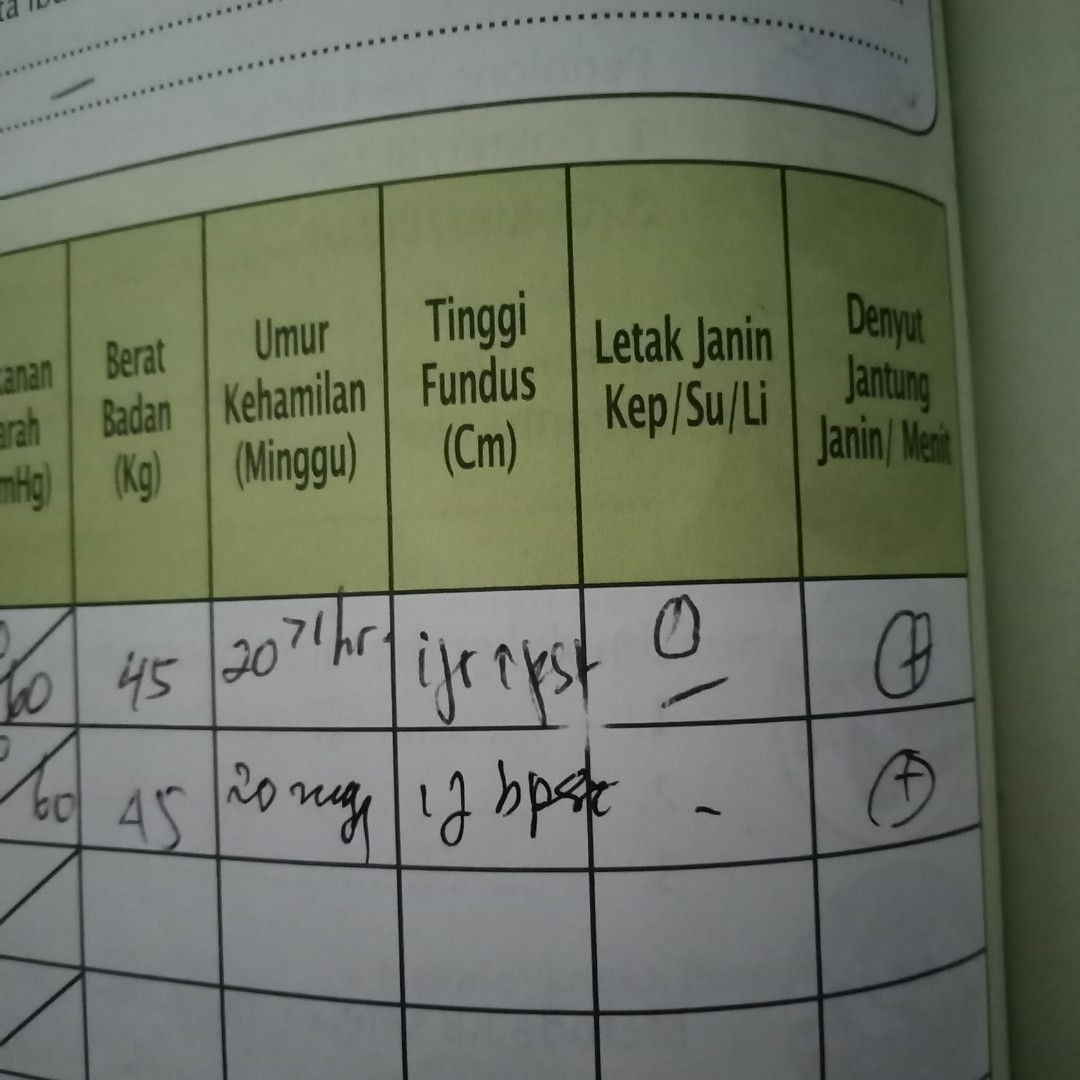 anan
arah
mHg)
Berat
Badan
(Kg)
Umur
Kehamilan
(Minggu)
Tinggi
Fundus
(Cm)
Letak Janin
Kep/Su/Li
Denyut
Jantung
Janin/ Menit
60 45 20 +
60 45 20 - +